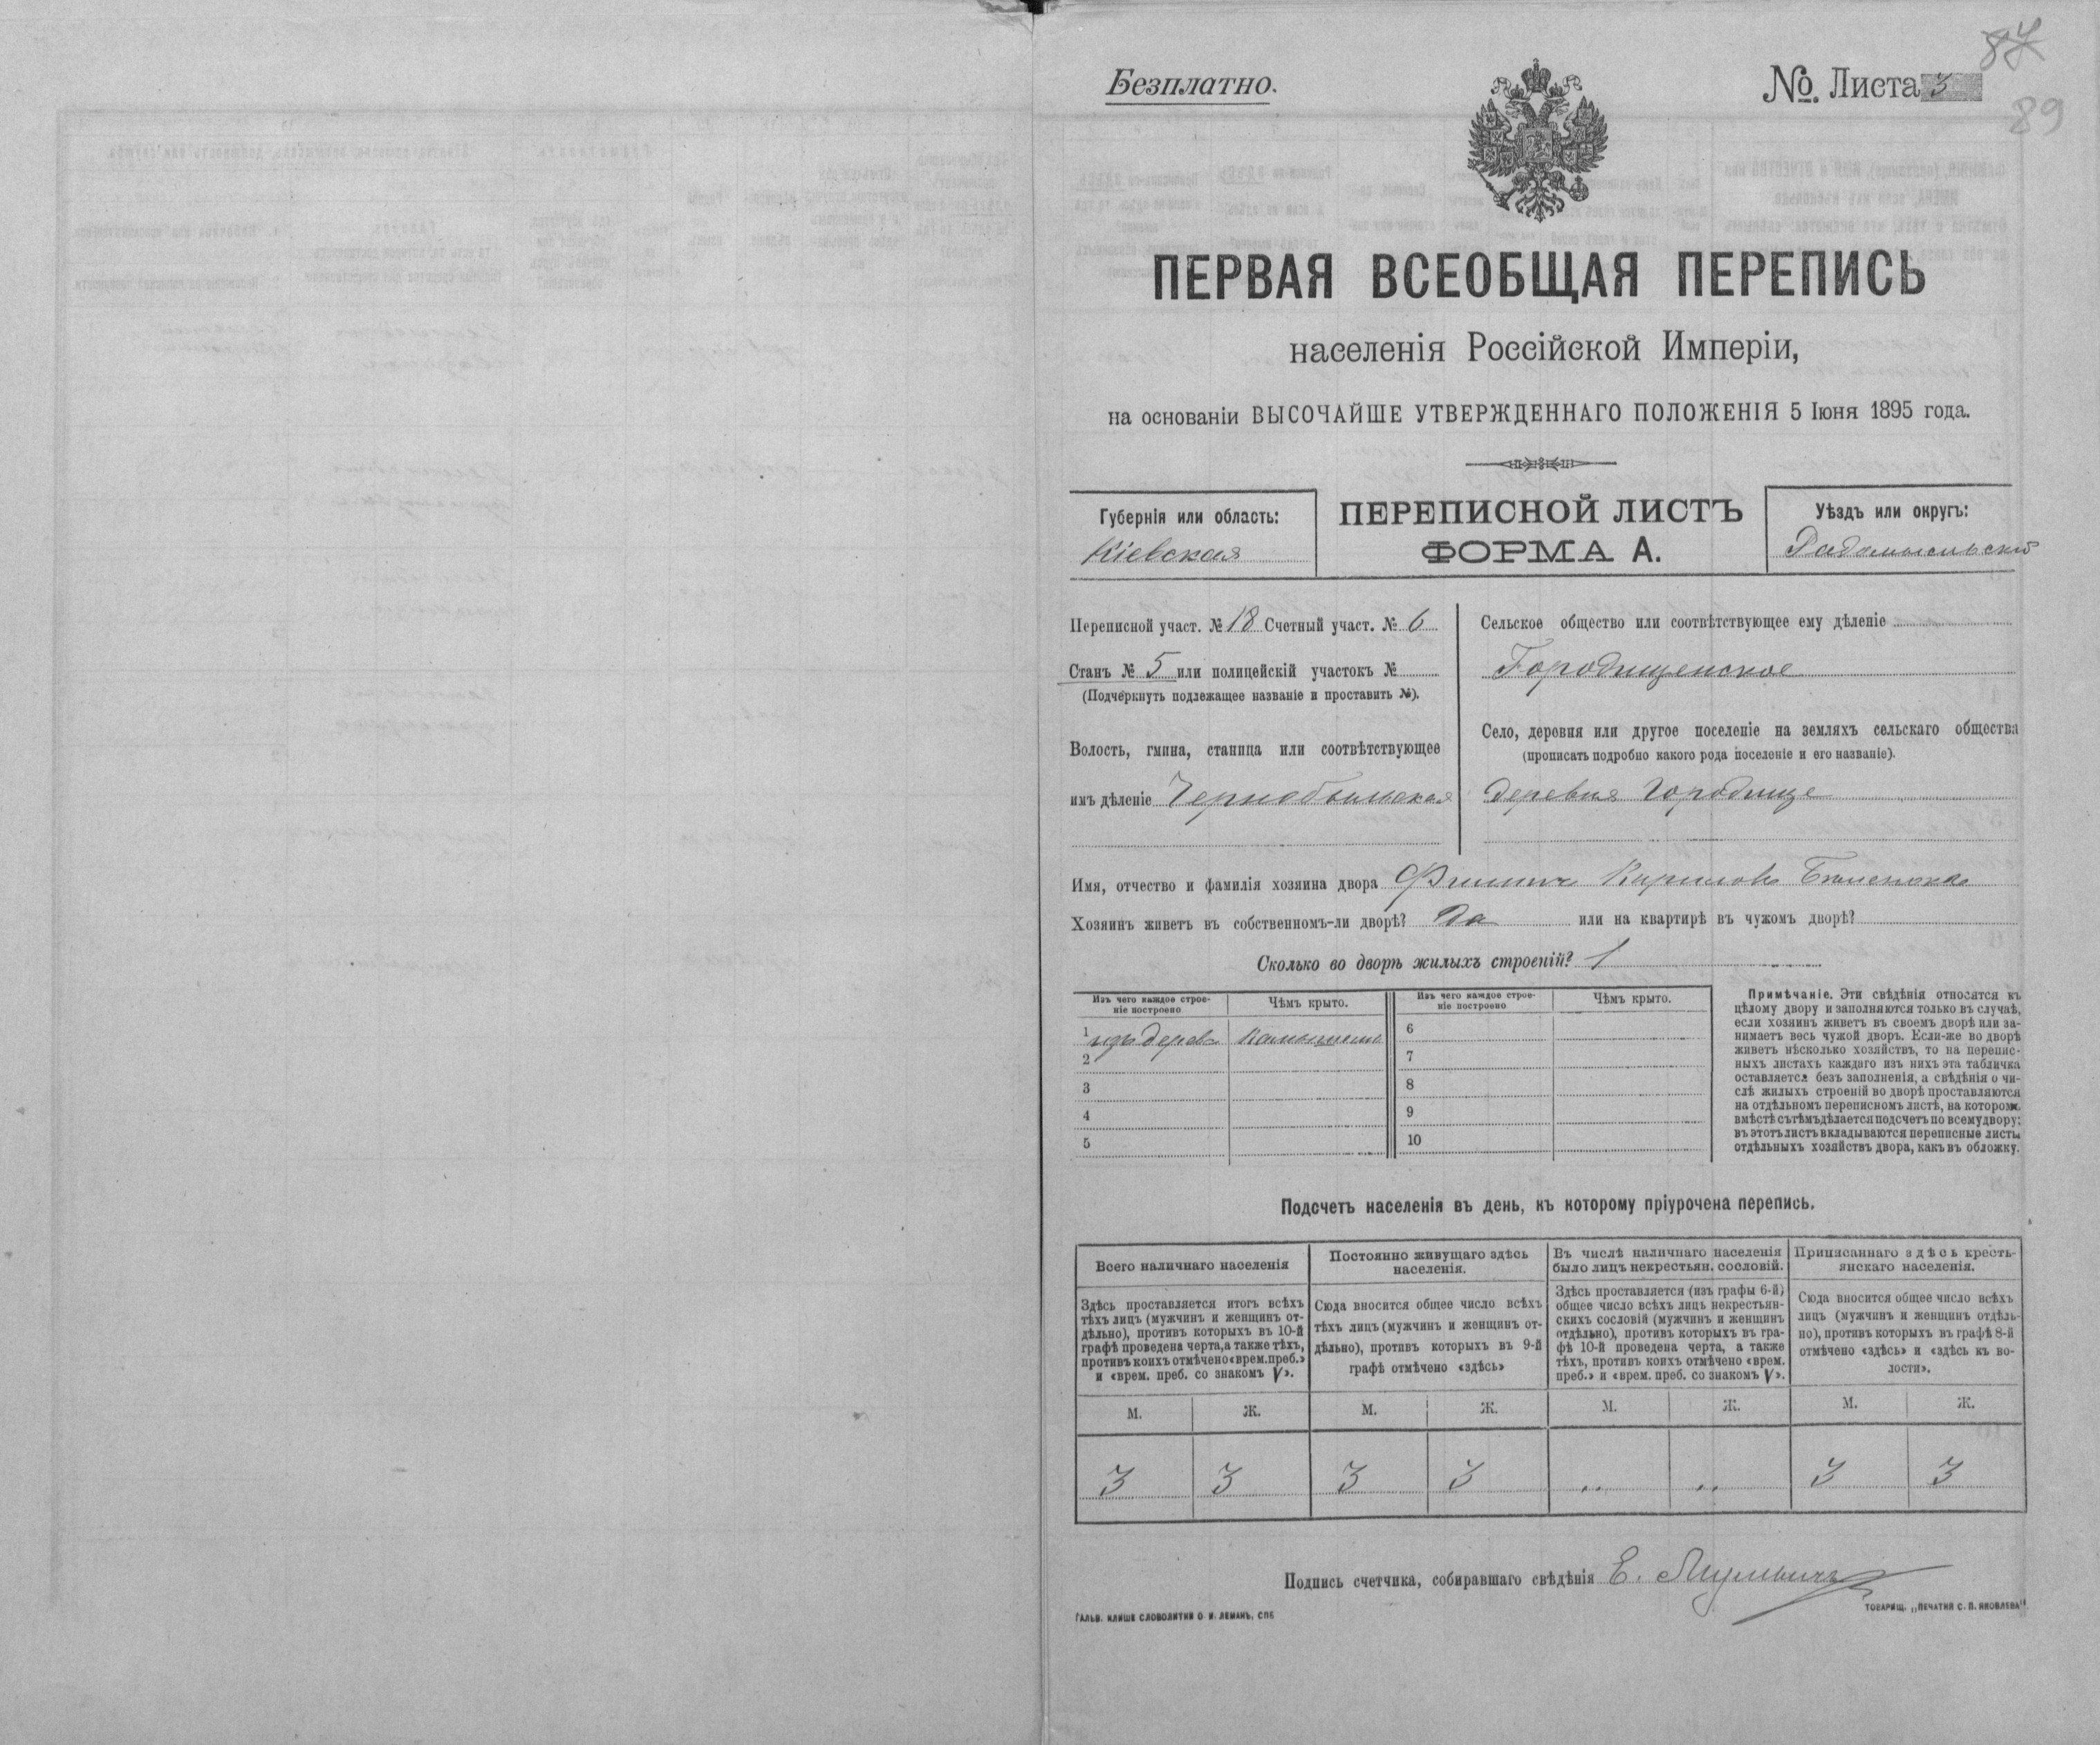 87
Безплатно.
№. Листа 3
89
ПЕРВАЯ ВСЕОБЩАЯ ПЕРЕПИСЬ
населенія Россійской Имперіи,
на основаніи ВЫСОЧАЙШЕ УТВЕРЖДЕННАГО ПОЛОЖЕНІЯ 5 Іюня 1895 года.
Губернія или область:
Кіевская
ПЕРЕПИСНОЙ ЛИСТЪ
ФОРМА А.
Уѣздъ или округъ:
Радомысльскій
Переписной участ. № 18 Счетный участ. № 6
Станъ № 5 или полицейскій участокъ №
(Подчеркнуть подлежащее названіе и проставить №).
Волость, гмина, станица или соотвѣтствующее
имъ дѣленіе Чернобыльская
Сельское общество или соотвѣтствующее ему дѣленіе
Городищенское
Село, деревня или другое поселеніе на земляхъ сельскаго общества
(прописать подробно какого рода поселеніе и его названіе).
деревня Городище
Имя, отчество и фамилія хозяина двора Филипъ Кириловъ
Хозяинъ живетъ въ собственномъ-ли дворѣ? Да или на квартирѣ въ чужомъ дворѣ?
Сколько во дворѣ жилыхъ строеній? 1
Изъ чего каждое строе-
ніе построено
Чѣмъ крыто.
Изъ чего каждое строе-
ніе построено
Чѣмъ крыто.
1 изъ дерева Камышемъ
2
3
4
5
6
7
8
9
10
Примѣчаніе. Эти свѣдѣнія относятся къ
цѣлому двору и заполняются только въ случаѣ,
если хозяинъ живетъ въ своемъ дворѣ или за-
нимаетъ весь чужой дворъ. Если-же во дворѣ
живетъ нѣсколько хозяйствъ, то на перепис-
ныхъ листахъ каждаго изъ нихъ эта табличка
оставляется безъ заполненія, а свѣдѣнія о чи-
слѣ жилыхъ строеній во дворѣ проставляются
на отдѣльномъ переписномъ листѣ, на которомъ
вмѣстѣ съ тѣмъ дѣлается подсчетъ по всему двору;
въ этотъ листъ вкладываются переписные листы
отдѣльныхъ хозяйствъ двора, какъ въ обложку.
Подсчетъ населенія въ день, къ которому пріурочена перепись.
Всего наличнаго населенія
Постоянно живущаго здѣсь
населенія.
Въ числѣ наличнаго населенія
было лицъ некрестьян. сословій.
Приписаннаго здѣсь кресть-
янскаго населенія.
Здѣсь проставляется итогъ всѣхъ
тѣхъ лицъ (мужчинъ и женщинъ от-
дѣльно), противъ которыхъ въ 10-й
графѣ проведена черта, а также тѣхъ,
противъ коихъ отмѣчено «врем. преб.»
и «врем. преб. со знакомъ V».
Сюда вносится общее число всѣхъ
тѣхъ лицъ (мужчинъ и женщинъ от-
дѣльно), противъ которыхъ въ 9-й
графѣ отмѣчено «здѣсь»
Здѣсь проставляется (изъ графы 6-й)
общее число всѣхъ лицъ некрестьян-
скихъ сословій (мужчинъ и женщинъ
отдѣльно), противъ которыхъ въ гра-
фѣ 10-й проведена черта, а также
тѣхъ, противъ коихъ отмѣчено «врем.
преб.» и «врем. преб. со знакомъ V».
Сюда вносится общее число всѣхъ
лицъ (мужчинъ и женщинъ отдѣль-
но), противъ которыхъ въ графѣ 8-й
отмѣчено «здѣсь» и «здѣсь къ во-
лости».
М. Ж. М. Ж. М. Ж. М. Ж.
3 3 3 3 „ „ 3 3
Подпись счетчика, собиравшаго свѣдѣнія Е.
ГАЛЬВ. КЛИШЕ СЛОВОЛИТНИ О. И. ЛЕМАНЪ, СПБ
ТОВАРИЩ. „ПЕЧАТНЯ С. П. ЯКОВЛЕВА"